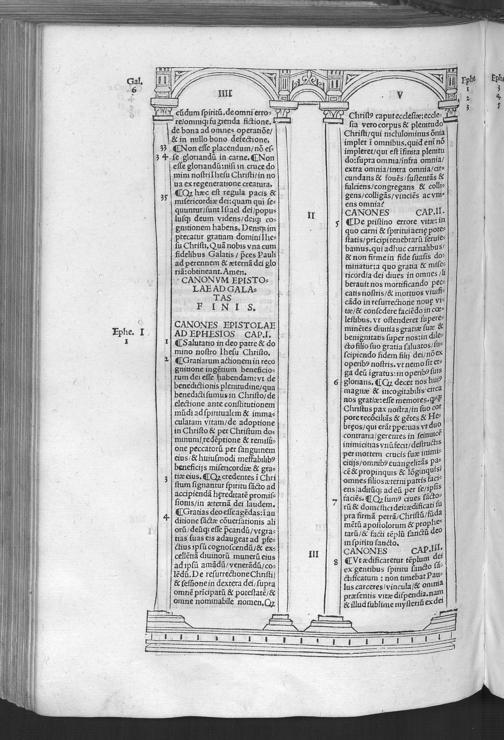 Gal.
6
IIII
eūdum spiritū, de omni erro-
re/omniq; fugienda fictione,
de bona ad omnes operatiōe/
& in nullo bono defectione.
33 ¶Non esse placendum/nō es-
34 se gloriandū in carne. ¶Non
esse gloriandū: nisi in cruce do
mini nostri Ihesu Christi/in no
ua ex regeneratione creatura.
35 ¶Qꝫ hæc est regula pacis &
misericordiæ dei: quam qui se-
quuntur/sunt Israel dei: popu
lusq; deum videns/deiq; co-
gnitionem habens. Denique im
precatur gratiam domini Ihe-
su Christi, Quā nobis vna cum
fidelibus Galatis/ & preces Pauli
ad perennem & æternā dei glo
riā: obtineant. Amen.
CANONVM EPISTO-
LAE AD GALA-
TAS
FINIS.
Ephe. I
CANONES EPISTOLAE
AD EPHESIOS CAP.I.
1 ¶Salutatio in deo patre & do
mino nostro Ihesu Christo.
2 ¶Gratiarum actionem in reco
gnitione ingenue beneficio-
rum dei esse habendam: vt de
benedictionis plenitudine/qua
benedicti sumus in Christo/de
electione ante constitutionem
mūdi ad spiritualem & imma-
culatam vitam/de adoptione
in Christo & per Christum do-
minum/redēptione & remissi-
one peccatorū per sanguinem
eius/& huiusmodi ineffabilibꝰ
beneficijs misericordiæ & gra-
3 tiæ eius. ¶Qꝫ credentes i Chri
stum signantur spiritu sācto ad
accipiendā hæreditatē promis-
sionis/in æternā dei laudem.
4 ¶Gratias deo esse agēdas: i au
ditione sāctæ cōuersationis ali
orū/deūq; esse precandū/vt gra-
tias suas eis adaugeat ad pfe-
ctius ipsū cognoscendū/& ex-
cellētiā diuinorū munerū eius
ad ipsū amādū/venerādū/co-
lēdū. De resurrectione Christi/
& sessione in dextera dei: supra
omnē pricipatū & potestatē/&
omne nominabile nomen, Qꝫ
V
Christꝰ caput ecclesiæ: eccle-
sia vero corpus & plenitudo
Christi/qui incolumibus ōnia
implet i omnibus. quid eni nō
impleret/qui est ifinita plenitu
do: supra omnia/infra omnia/
extra omnia/intra omnia/cir
cundans & fouēs/sustentās &
fulciens/congregans & colli-
gens/colligās/vinciēs ac vni-
ens omnia?
II CANONES CAP.II.
5 ¶De pristino errore vitæ: in
quo carni & spiritui aereę pote-
statis/pricipi tenebrarū seruie-
bamus. qui adhuc carnalibus/
& non firme in fide suffis do-
minatur: a quo gratia & mise-
ricordia dei diues in omnes/li
berauit nos mortificando pec-
catis nostris/& mortuos viuifi-
cādo in resurrectione nouę vi
tæ/& consedere faciēdo in cœ-
lestibus. vt ostenderet supere-
minētes diuitias gratiæ suæ &
benignitatis super nos: in dile-
cto filio suo gratia saluatos/su-
scipiendo fidem filij dei/nō ex
operibꝰ nostris. vt nemo sit er-
ga deū igratus: in operibꝰ suis
6 glorians. ¶Qꝫ decet nos huiꝰ
magnæ & incogitabilis erga
nos gratiæ: esse memores. quia
Christus pax nostra/in suo cor
pore recōciliās & gētes & He-
breos/qui erāt perpetuas vt duo
contraria/gerentes in seinuicē
inimicitias vniūfecit/destructis
per mortem crucis suæ inimi-
citijs/omnibꝰ euangelizās pa-
cē & propinquis & lōginquis/
omnes filios æterni patris faci-
ens/aditūq; ad eū per seipsum
7 faciēs. ¶Qꝫ sumꝰ ciues sācto-
rū & domestici dei: ædificati su
pra firmā petrā/Christū/fūda
mētū apostolorum & prophe-
tarū/& facti tēplū sanctū deo
in spiritu sancto.
III CANONES CAP.III.
8 ¶Vt ædificaretur tēplum dei
ex gentibus spiritu sancto sā-
ctificatum: non timebat Pau-
lus carceres/vincula/& omnia
præsentis vitæ dispendia. nam
& illud sublime mysteriū ex dei
Ephe.
1
2
3
Ephe
3
4
5